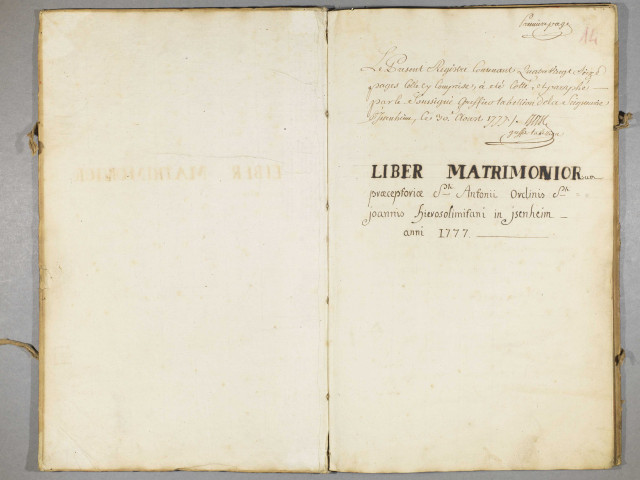 Premiere page
14
Le Present Registre Contenant
pages Celle cy Comprise, a été Cotté et paraphé
par le Soussigné Greffier tabellion de la Seigneurie
Isenheim, ce 30e Aoust 1777
LIBER MATRIMONIORum
præceptoriæ Sti Antonii Ordinis Sti
joannis hierosolimitani in jsenheim
anni 1777